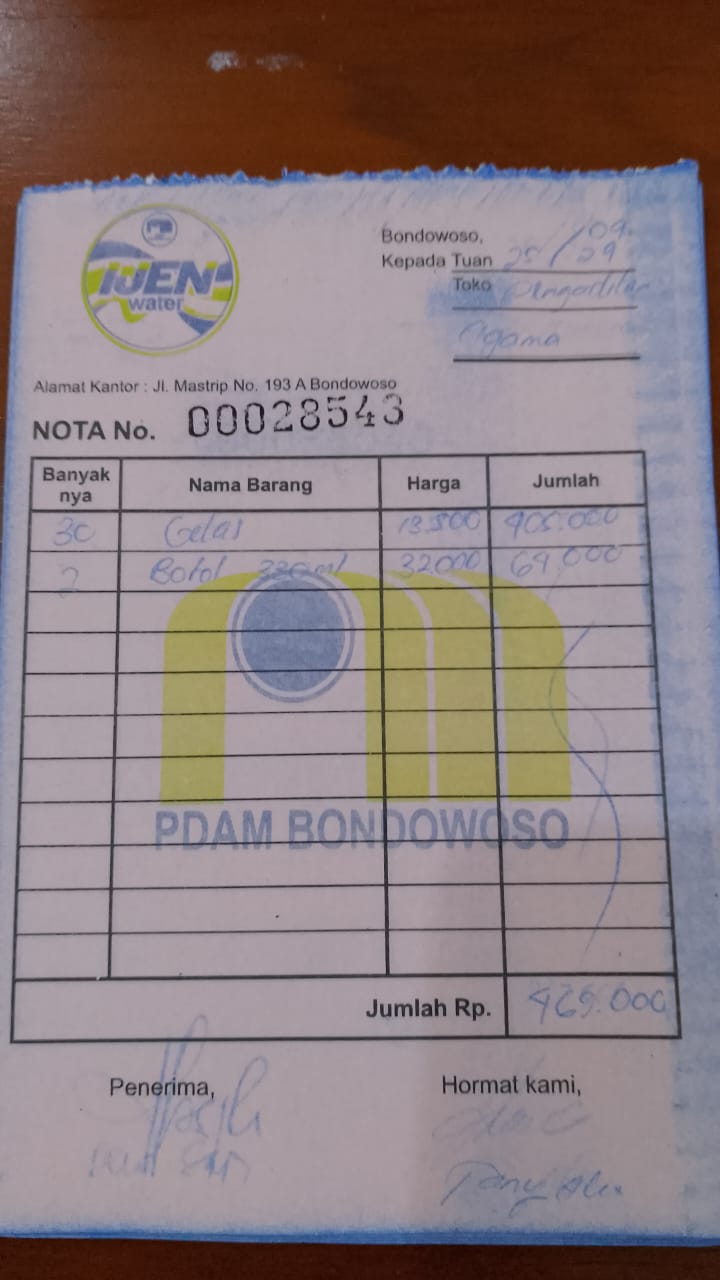 iJEN
water
Bondowoso,
Kepada Tuan 25/09
29
Toko Pengadilan
Agama
Alamat Kantor : Jl. Mastrip No. 193 A Bondowoso
NOTA No. 00028543
Banyak nya Nama Barang Harga Jumlah
30 Gelas 13.500 405.000
2 Botol 330 ml 32.000 64.000
PDAM BONDOWOSO
Jumlah Rp. 469.000
Penerima, Hormat kami,